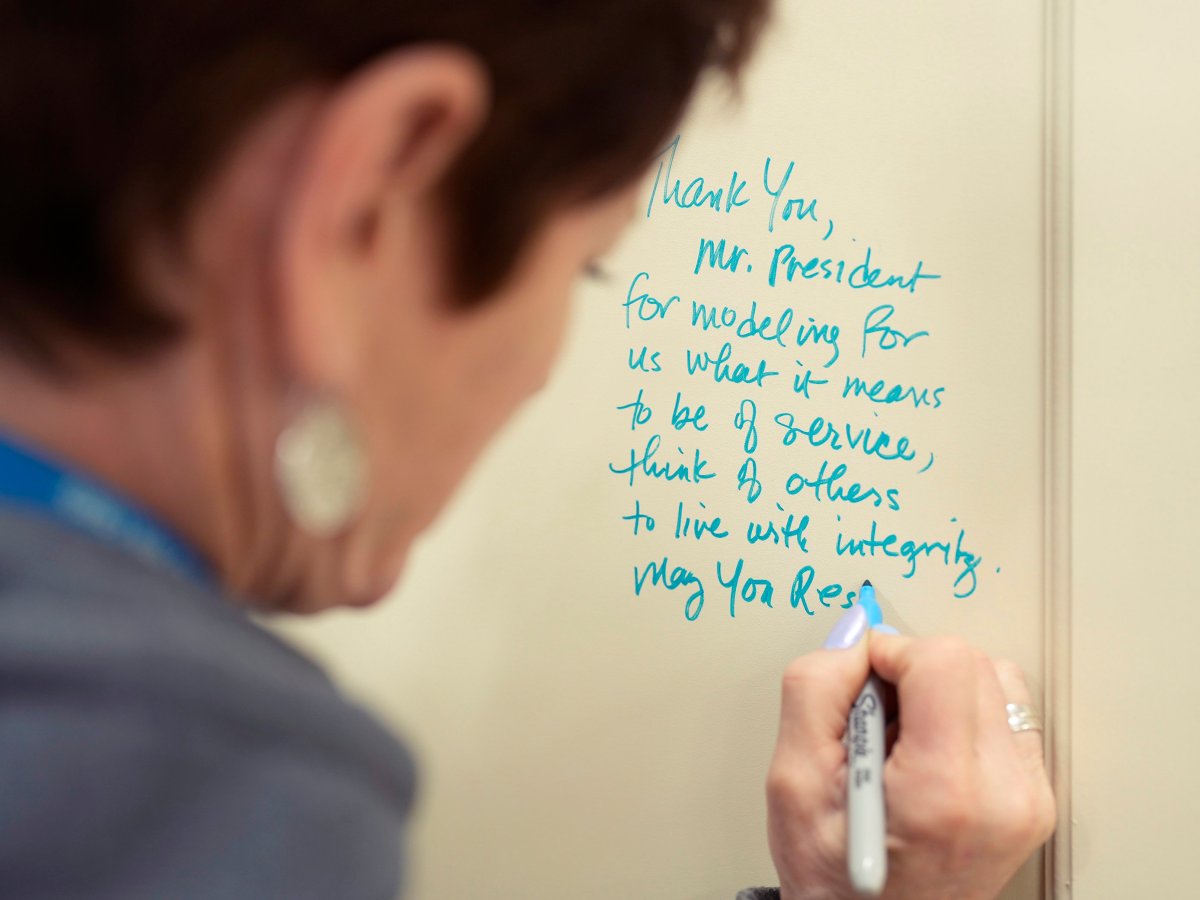 Thank You,
Mr. President
for modeling for
us what it means
to be of service,
think of others
to live with integrity.
May You Res
Sharpie